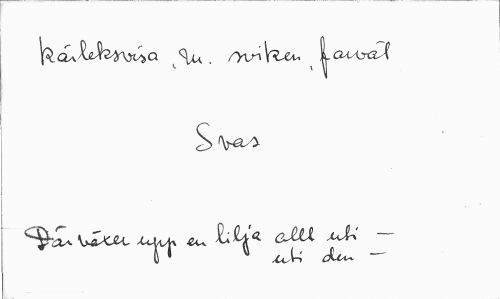 Kärleksvisa, m. sviken, farväl
Svas
Där växer upp en lilja allt uti —
uti den —